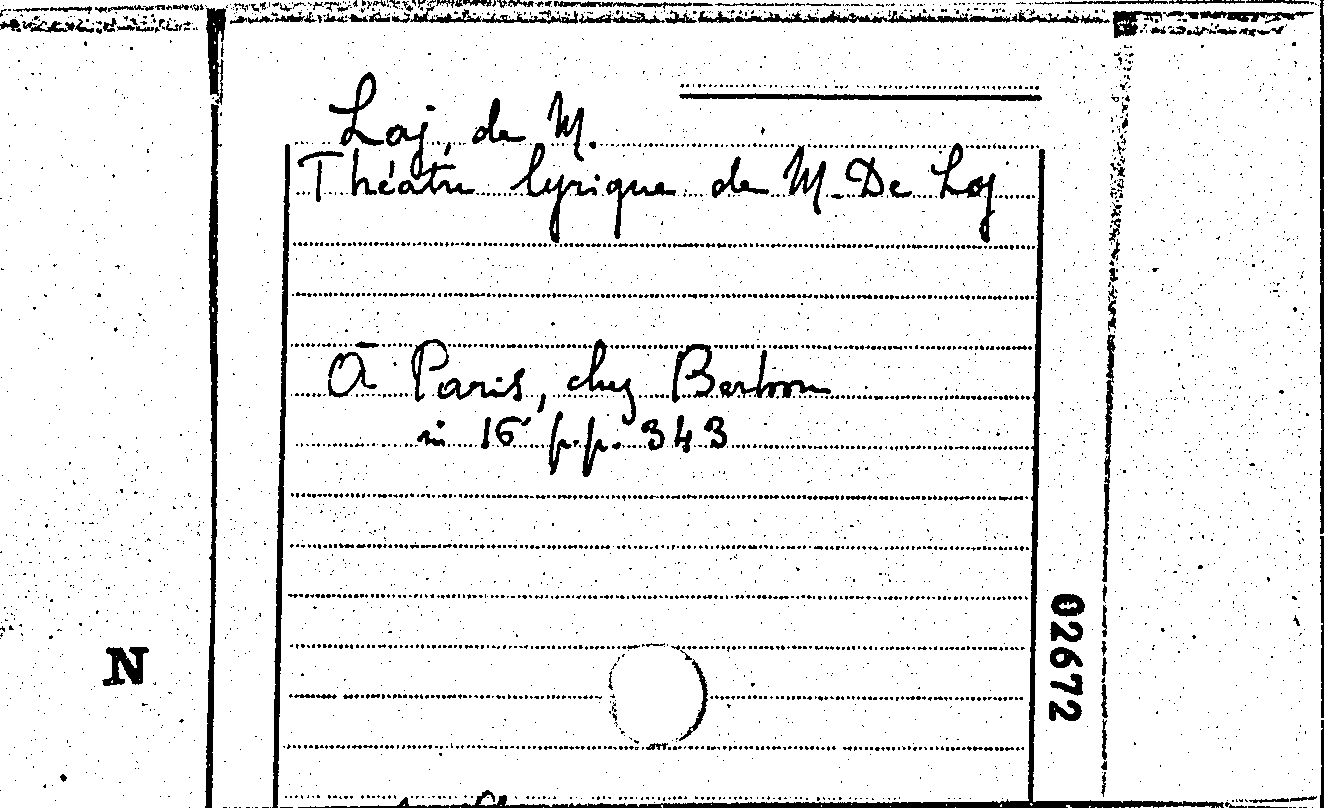 Loj, de M.
Théâtre lyrique de M. De Loj
À Paris, chez
in 16 p.p. 343
02672
N